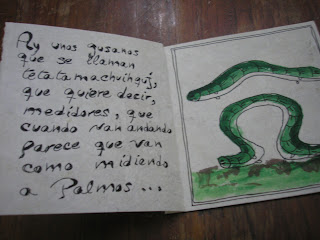 Ay unos gusanos
que se llaman
tetatamachuihquj,
que quiere decir,
medidores, que
cuando van andando
parece que van
como midiendo
a Palmos...